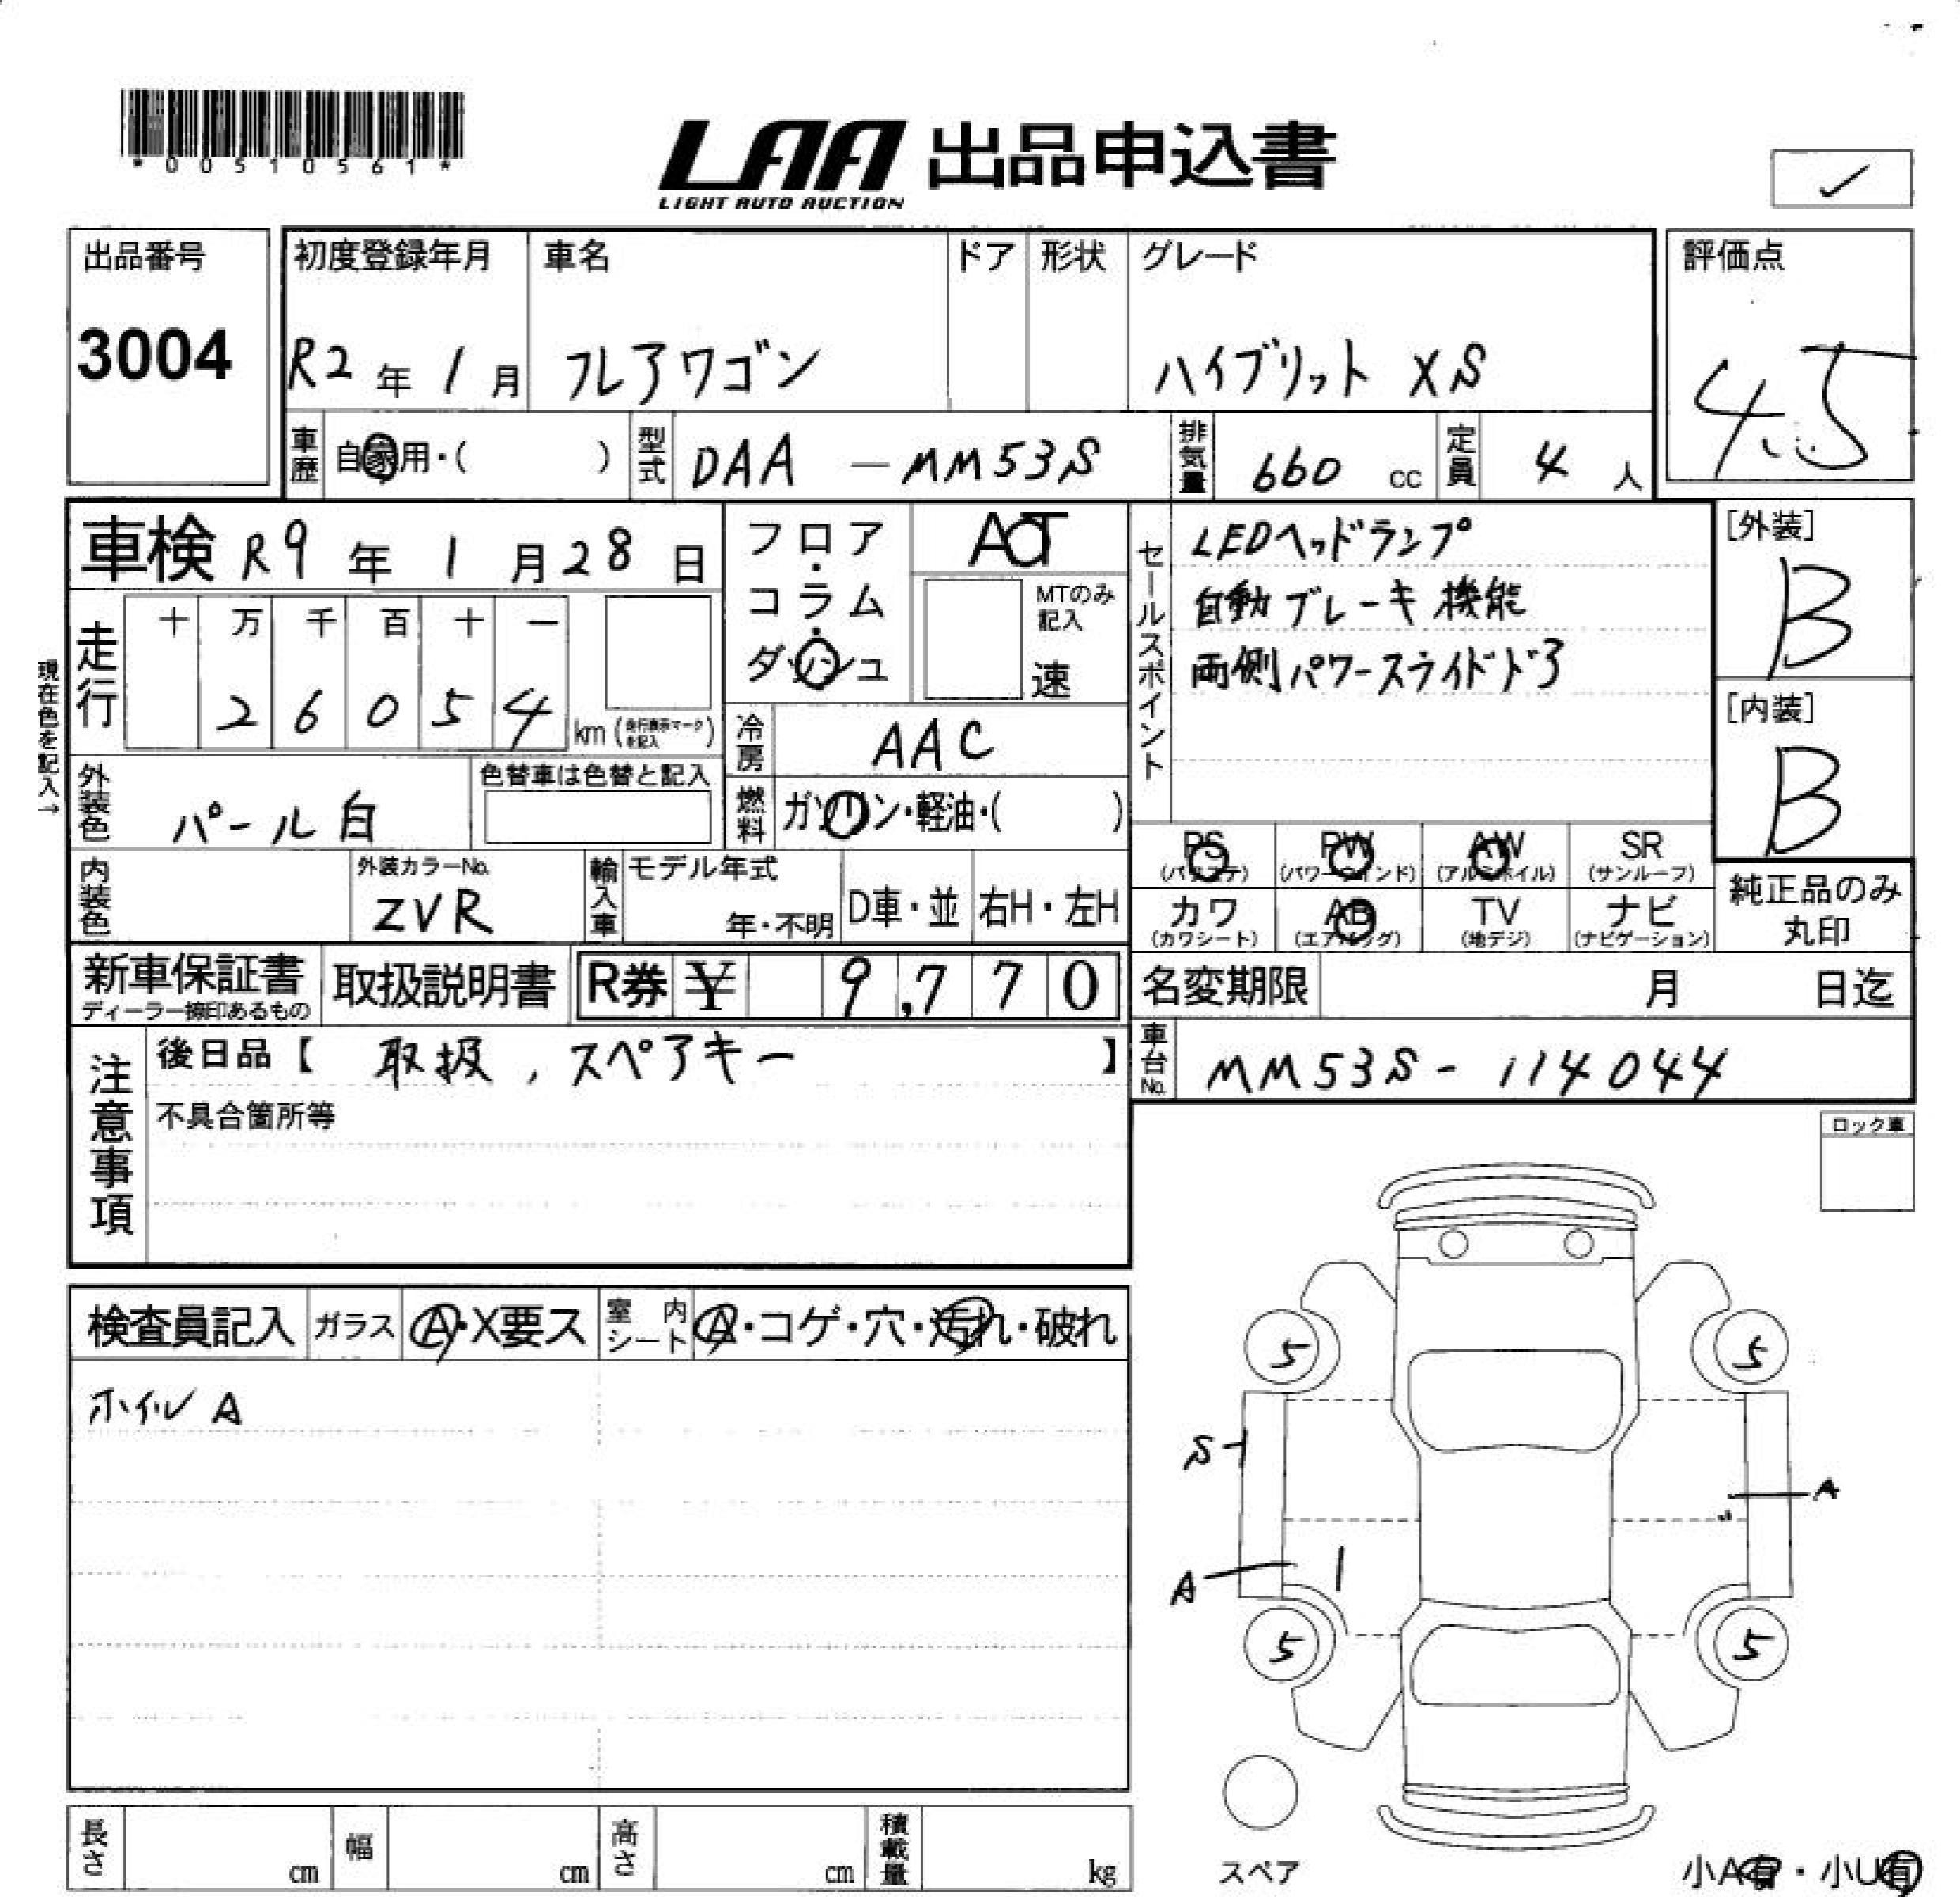 *00510561*
LAA 出品申込書
LIGHT AUTO AUCTION
✓
出品番号
3004
初度登録年月
R2年1月
車名
フレアワゴン
ドア
形状
グレード
ハイブリット XS
評価点
4.5
車歴
自家用・( )
型式
DAA - MM53S
排気量
660 cc
定員
4 人
車検 R9年1月28日
フロア・コラム・ダッシュ
AT
MTのみ記入
速
セールスポイント
LEDヘッドランプ
自動ブレーキ機能
両側パワースライドドア
[外装]
B
[内装]
B
現在色を記入→
走行
十 万 千 百 十 一
2 6 0 5 4
km (走行表示マークを記入)
冷房
AAC
外装色
パール白
色替車は色替と記入
燃料
ガソリン・軽油・( )
内装色
外装カラーNo.
ZVR
輸入車
モデル年式
年・不明
D車・並
右H・左H
PS (パワステ)
PW (パワーウインド)
AW (アルミホイル)
SR (サンルーフ)
カワ (カワシート)
AB (エアバッグ)
TV (地デジ)
ナビ (ナビゲーション)
純正品のみ丸印
新車保証書
ディーラー捺印あるもの
取扱説明書
R券 ¥ 9,770
名変期限 月 日迄
注意事項
後日品【 取扱, スペアキー 】
不具合箇所等
車台No.
MM53S - 114044
ロック車
検査員記入
ガラス
A・X要ス
室内シート
A・コゲ・穴・汚れ・破れ
ホイル A
5 5
S
A
A
1
5 5
スペア
長さ cm
幅 cm
高さ cm
積載量 kg
小A有・小U有